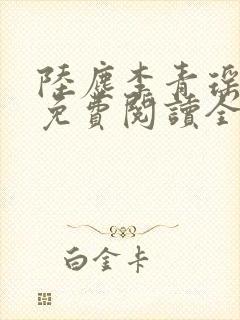 陸塵李青瑤
免費閱讀全
白金卡